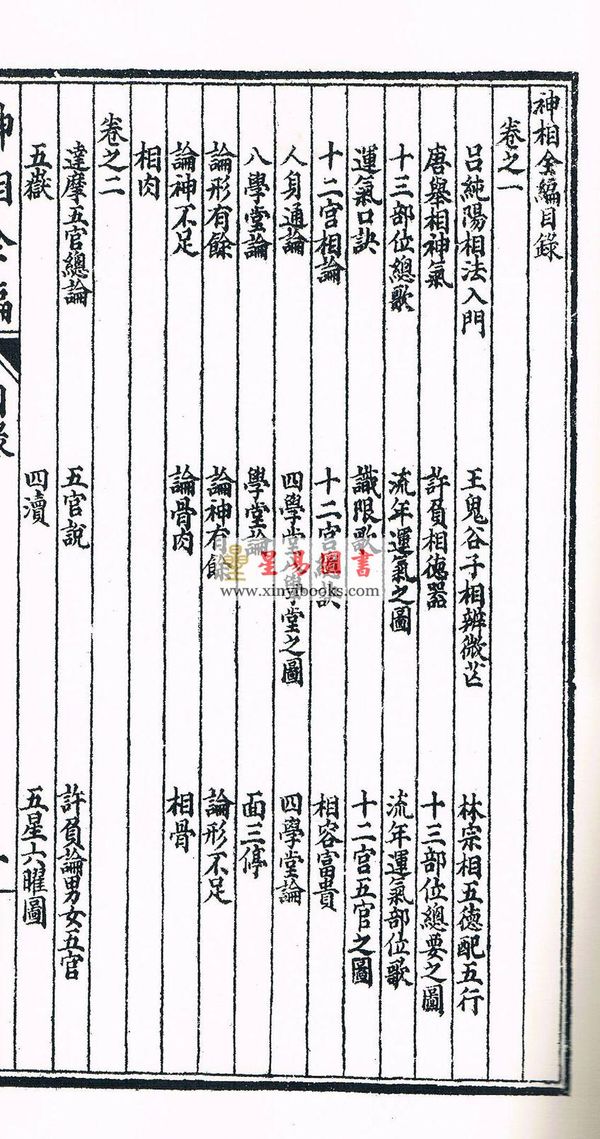 神相全編目錄
卷之一
呂純陽相法入門 王鬼谷子相辨微芒 林宗相五德配五行
唐舉相神氣 許負相德器 十三部位總要之圖
十三部位總歌 流年運氣之圖 流年運氣部位歌
運氣口訣 識限歌 十二宮五官之圖
十二宮相論 十二宮總訣 相容富貴
人身通論 四學堂八學堂之圖 四學堂論
八學堂論 學堂論 面三停
論形有餘 論神有餘 論形不足
論神不足 論骨肉 相骨
相肉
卷之二
達摩五官總論 五官說 許負論男女五官
五嶽 四瀆 五星六曜圖
神相全編 目錄
星易圖書
www.xinyibooks.com